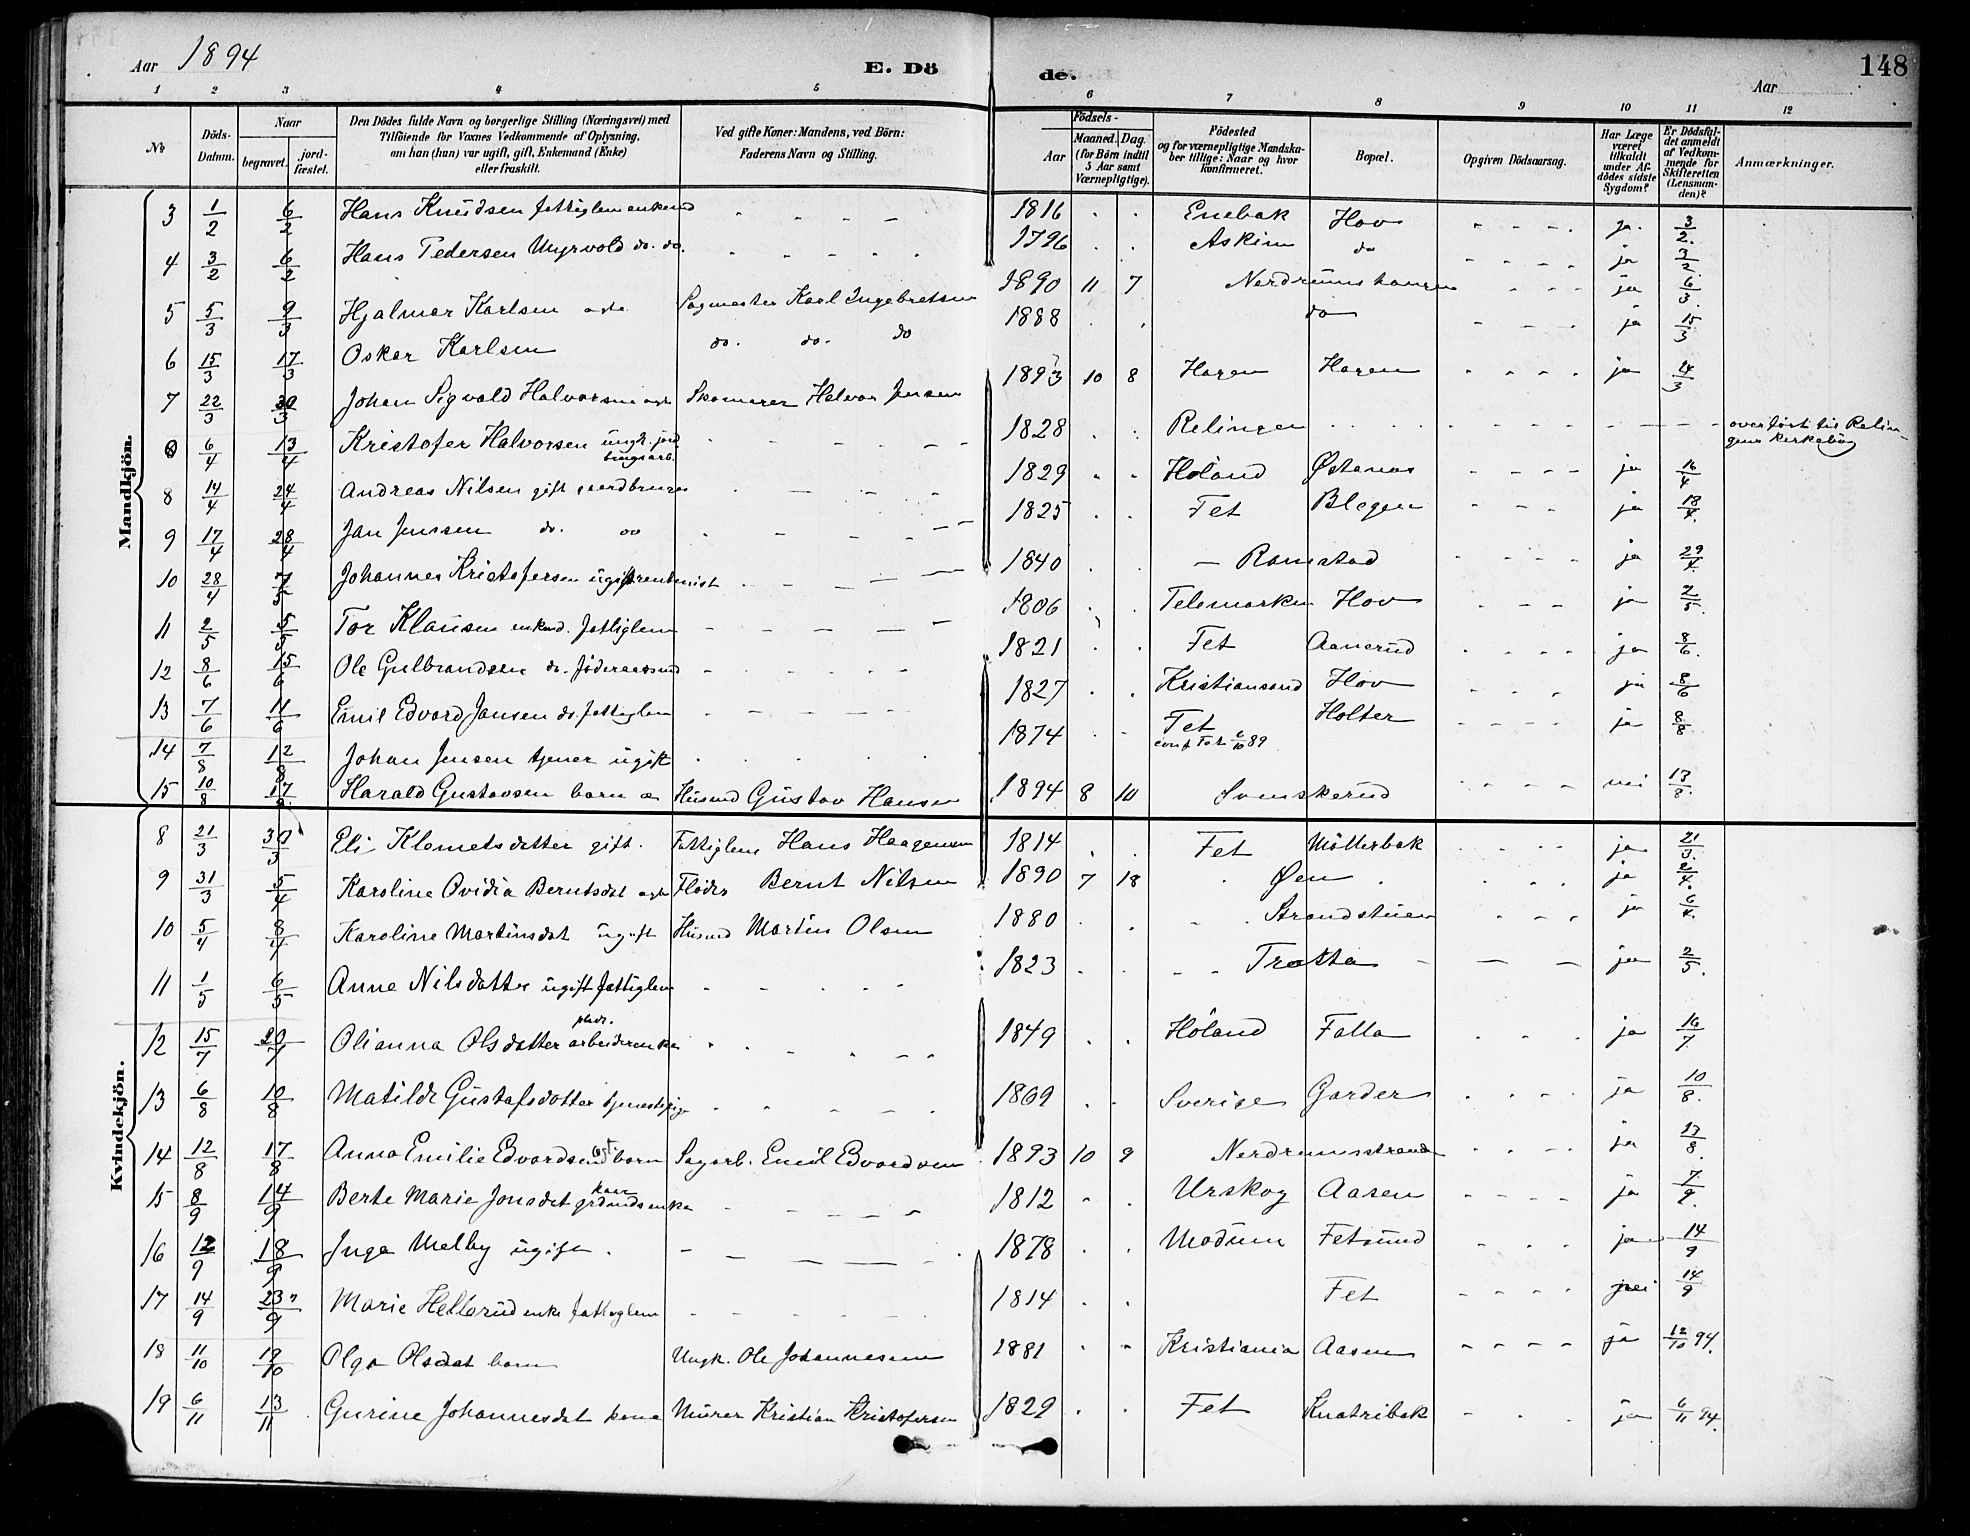 148
Aar 1894 E. Dö de. Aar
1 2 3 4 5 6 7 8 9 10 11 12
№ Döds-Datum. Naar begravet. jordfæstet. Den Dödes fulde Navn og borgerlige Stilling (Næringsvei) med Tilföiende for Voxnes Vedkommende af Oplysning, om han (hun) var ugift, gift, Enkemand (Enke) eller fraskilt. Ved gifte Koner: Mandens, ved Börn: Faderens Navn og Stilling. Födsels- Aar Maaned. Dag. (for Börn indtil 5 Aar samt Værnepligtige). Födested og for værnepligtige Mandskaber tillige: Naar og hvor konfirmeret. Bopæl. Opgiven Dödsaarsag. Har Læge været tilkaldt under Afdödes sidste Sygdom? Er Dödsfaldet anmeldt af Vedkommende for Skifteretten (Lensmanden)? Anmærkninger.
Mandkjön.
3 1/2 6/2 Hans Knudsen fattiglem enkemd 1816 Enebak Hov ja 3/2.
4 3/2 6/2 Hans Pedersen Myrvold do. do. 1796 Askim do ja 3/2
5 5/3 9/3 Hjalmar Karlsen Sagmester Karl Ingebretsen 1890 11 7 ja 6/3.
6 15/3 17/3 Oskar Karlsen do. do. do 1888 do ja 15/3
7 22/3 30/3 Johan Sigvald Halvorsen Halvor Jensen 1893 10 8 Hagen Hagen ja 14/3
6/4 13/4 Kristofer Halvorsen ungk. jordbrugsarb. 1828 Relingen overfört til Relingens kirkebog
8 14/4 24/4 Andreas Nilsen gift gaardbruger 1829 Höland Østenas ja 16/4
9 17/4 28/4 Jan Jenssen do. do 1825 Fet ja 18/4.
10 28/4 7/5 Johannes Kristofersen ugift 1840 Ramstad ja 29/4.
11 2/5 5/5 Tor Klausen enkemd. fattiglem 1806 Telemarken Hov ja 2/5.
12 8/6 15/6 Ole Gulbrandsen do. 1821 Fet Aanerud ja 8/6.
13 7/6 11/6 Emil Edvard Jansen do. fattiglem 1827 Kristiansand Hov ja 8/6
14 7/8 12/8 Johan Jensen tjener ugift 1874 Fet conf Fet 6/10 89 Holter ja 8/8
15 10/8 17/8 Harald Gustavsen barn Husmd Gustav Hansen 1894 8 10 Svenskerud nei 13/8.
Kvindekjön.
8 21/3 30/3 Eli Klemetsdatter gift. Fattiglem Hans Haagensen 1814 Fet Mötterbak ja 21/3.
9 31/3 5/4 Karoline Ovidia Berntsdat Bernt Nilsen 1890 7 18 Øen ja 2/4.
10 5/4 8/4 Karoline Martinsdat ugift Husmd Martin Olsen 1880 Strandstuen ja 6/4.
11 1/5 6/5 Anne Nilsdatter ugift fattiglem 1823 Tratta ja 2/5.
12 15/7 20/7 Olianna Olsdatter arbeiderenke 1849 Höland Falla ja 16/7.
13 6/8 10/8 Matilde Gustafsdatter tjenestepige 1869 Sverige Garder ja 10/8.
14 12/8 17/8 Anna Emilie Edvardsen barn Sagarb. Emil Edvardsen 1893 10 9 Nerdrumsstrand ja 13/8.
15 8/9 14/9 Berte Marie Jonsdat 1812 Urskog Aasen ja 7/9.
16 12/9 18/9 Inga Melby ugift. 1878 Modum Fetsund ja 14/9
17 14/9 23/9 Marie Hellerud enke fattiglem 1814 Fet nei 14/9
18 11/10 19/10 Olga Olsdat barn Ungk. Ole Johannesen 1881 Kristiania Aasen ja 12/10 94.
19 6/11 13/11 Gurine Johannesdat kone Murer Kristian Kristofersen 1829 Fet Knatribak ja 6/11 94.